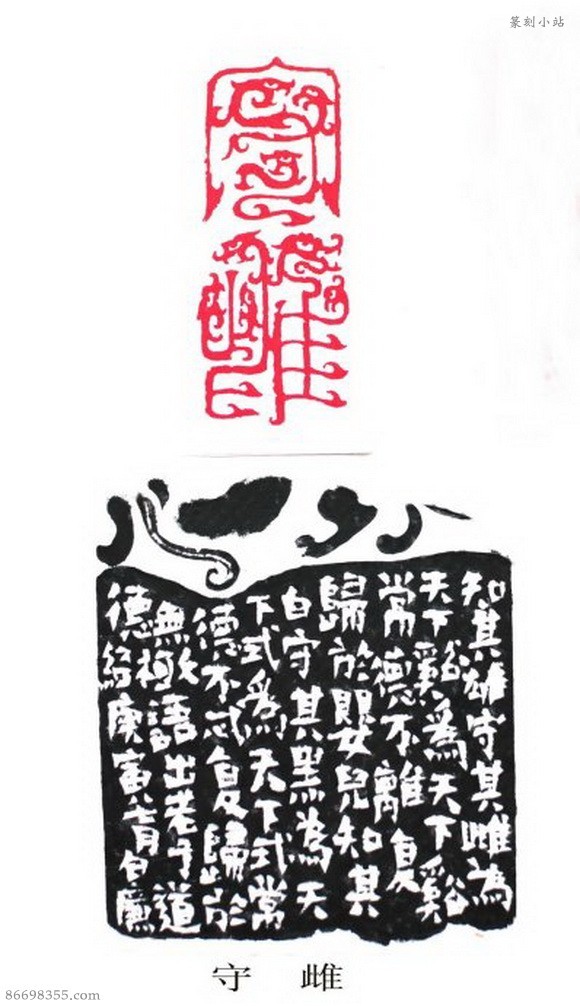 篆刻小站
守雌
知其雄守其雌為
天下谿爲天下谿
常德不離复
歸於嬰兒知其
白守其黑為天
下式爲天下式常
德不忒复歸於
無極語出老子道
德經庚寅八月
守 雌
86698355.com